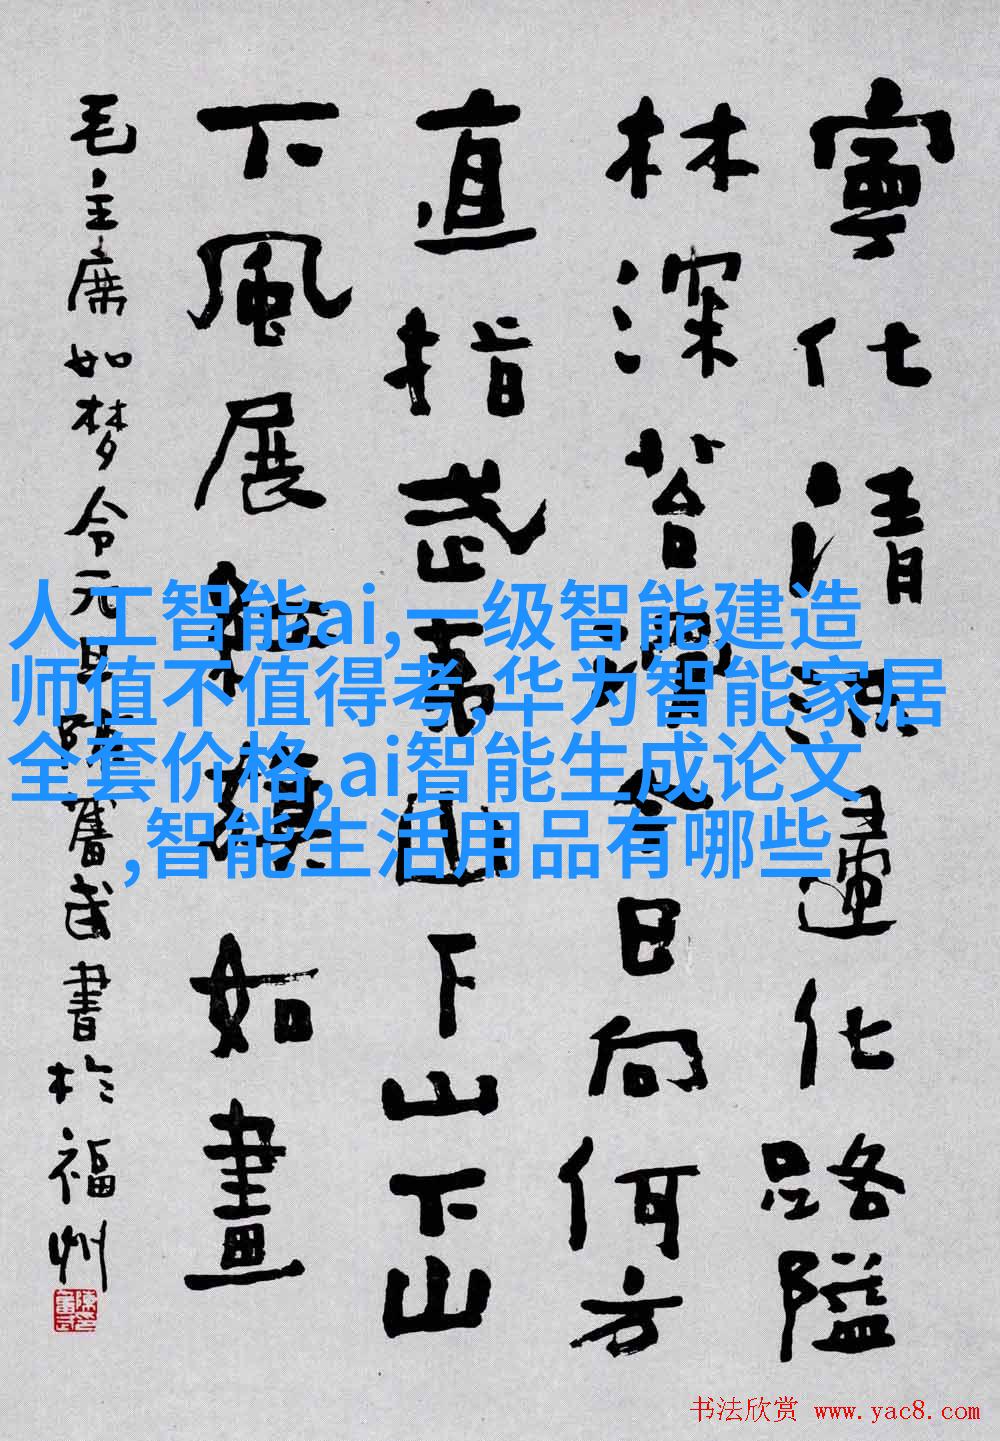 寧化清流歸化路隘
林深苔滑今日向何方
直指武夷山下山下山
下風展紅旗如畫
毛主席如梦令元旦陳奮武書於福州
人工智能ai,一级智能建造
师值不值得考,华为智能家居
全套价格,ai智能生成论文
,智能生活用品有哪些
书法欣赏 www.yac8.com